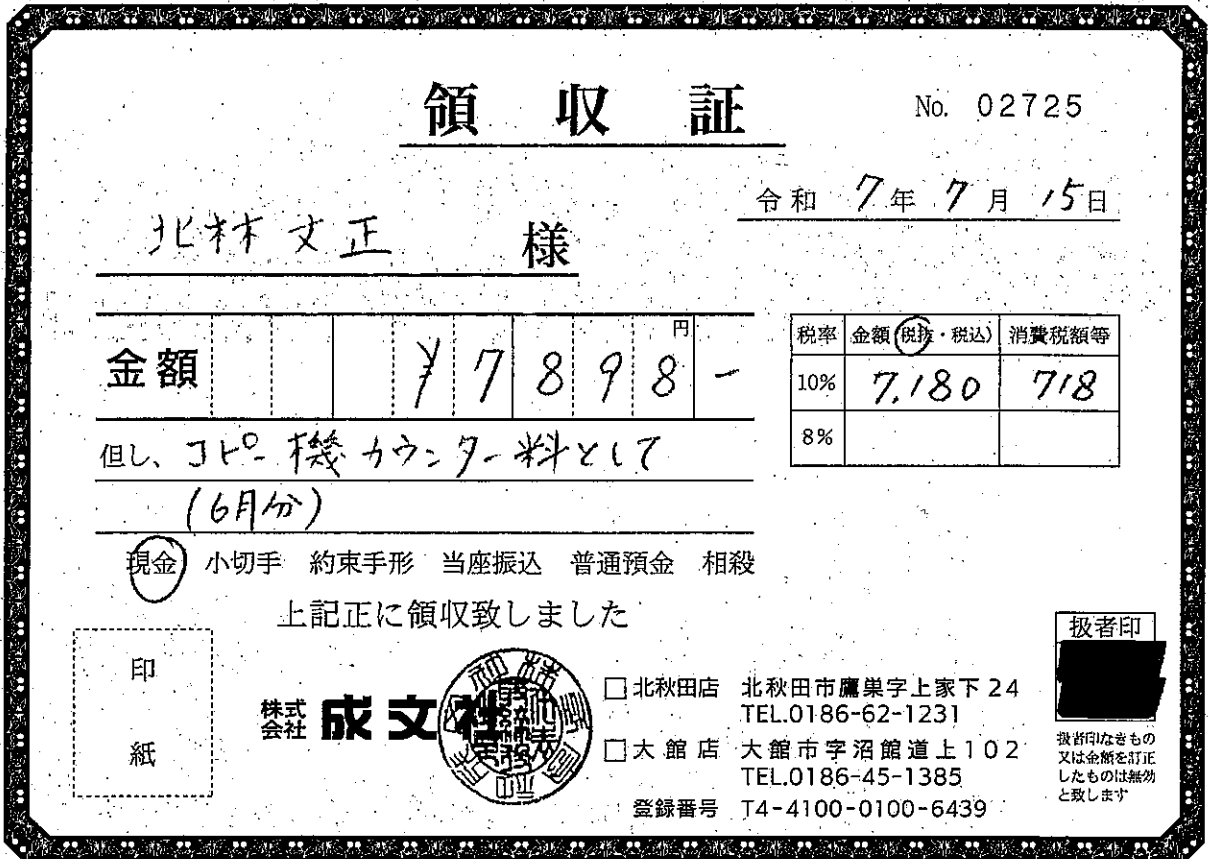 領収証
No. 02725
令和 7年 7月 15日
北林丈正 様
金額 ¥7898円-
税率 金額(税抜・税込) 消費税額等
10% 7,180 718
8%
但し、コピー機カウンター料として
(6月分)
現金 小切手 約束手形 当座振込 普通預金 相殺
上記正に領収致しました
印紙
株式会社 成文社
□北秋田店 北秋田市鷹巣字上家下24
TEL.0186-62-1231
□大館店 大館市字沼館道上102
TEL.0186-45-1385
登録番号 T4-4100-0100-6439
扱者印
扱者印なきもの
又は金額を訂正
したものは無効
と致します